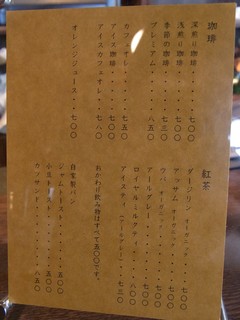 珈琲
深煎り珈琲・・・七〇〇
浅煎り珈琲・・・七〇〇
季節の珈琲・・・七三〇
プレミアム・・・八五〇
カフェオレ・・・七五〇
アイス珈琲・・・七〇〇
アイスカフェオレ・・七八〇
オレンジジュース・・七〇〇
紅茶
ダージリン オーガニック・・・七〇〇
アッサム オーガニック・・・七〇〇
ウバ オーガニック・・・七〇〇
アールグレー・・・七〇〇
ロイヤルミルクティ・・・八〇〇
アイスティ（アールグレー）・・七三〇
おかわり飲み物はすべて五〇〇です。
自家製パン
ジャムトースト・・・五〇〇
小豆トースト・・・五五〇
カツサンド・・・・八五〇